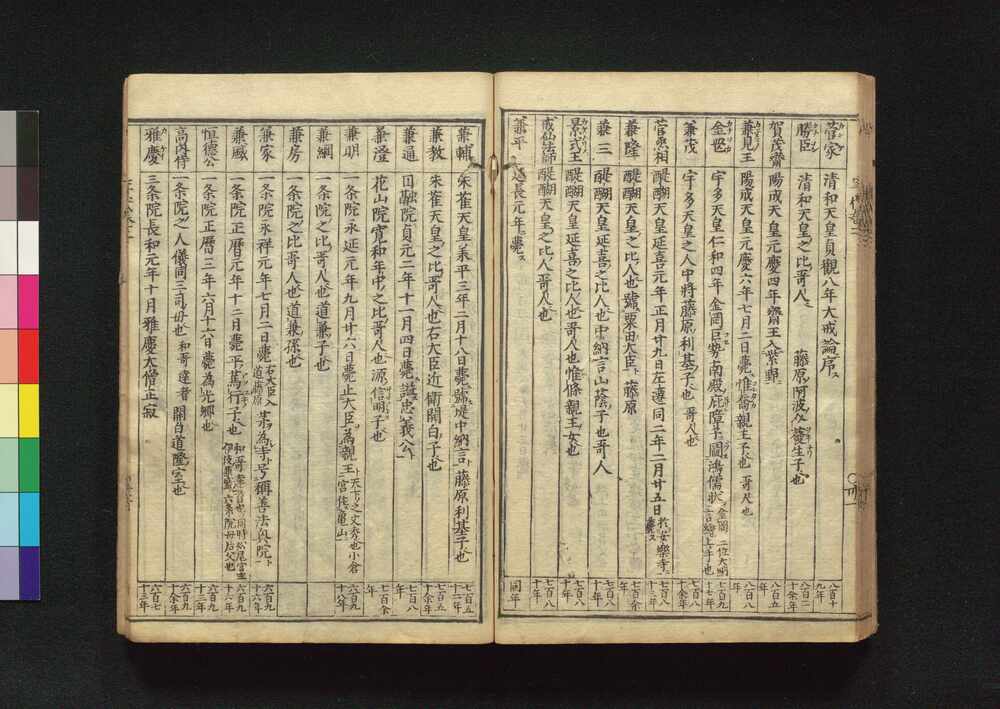 菅家 清和天皇貞觀八年大戒論序ス 八百十九年
勝臣 清和天皇之比哥人 藤原阿波介發生子也 八百二十余年
賀茂齋 陽成天皇元慶四年齋王入紫野 八百五年
兼見王 陽成天皇元慶六年七月二日薨惟喬親王子也 哥人也 八百二年
金岡 宇多天皇仁和四年金岡巨勢南殿庇障子圖鴻儒狀 七百九十七年
兼茂 宇多天皇之人中將藤原利基子也 哥人也 七百九十余年
菅丞相 醍醐天皇延喜元年正月廿九日左遷同二年二月廿五日 七百八十三年
兼隆 醍醐天皇之比人也號粟田大臣 藤原 七百余年
兼三 醍醐天皇延喜之比人也中納言山蔭子也哥人 七百八十年
景式王 醍醐天皇延喜之比人也哥人也惟條親王女也 七百八十年
戒仙法師 醍醐天皇之比人哥人也 七百八十年
兼平 延長元年薨ス 同年
兼輔 朱雀天皇承平三年二月十八日薨號堤中納言藤原利基子也 七百五十二年
兼教 朱雀天皇之比哥人也右大臣近衛關白子也 七百五十余年
兼通 円融院貞元二年十一月四日薨謚忠義公 七百八年
兼澄 花山院寛和年中之比哥人也源信明子也 七百余年
兼明 一条院永延元年九月廿六日薨止大臣為親王 天下之文秀也小倉宮住亀山 六百九十八年
兼綱 一条院之比哥人也道兼子也
兼房 一条院之比哥人也道兼孫也
兼家 一条院永祥元年七月二日薨 右大臣入道藤原 宗為寺号稱善法興院 六百九十六年
兼盛 一条院正暦元年十二月薨平篤行子也 六百九十六年
恒德公 一条院正暦三年六月十六日薨為光卿也 六百九十三年
高内侍 一条院之人儀同三司母也和哥達者 關白道隆室也 六百九十余年
雅慶 三条院長和元年十月雅慶大僧正寂 六百七十三年